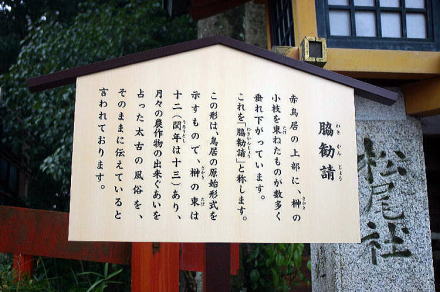 脇勧請
わきかんじょう
赤鳥居の上部に、榊の
さかき
小枝を束ねたものが数多く
たば
垂れ下がっています。
これを「脇勧請」と称します。
わきかんじょう
この形は、鳥居の原始形式を
示すもので、榊の束は
さかき
たば
十二(閏年は十三)あり、
うるうどし
月々の農作物の出来ぐあいを
占った太古の風俗を、
そのままに伝えていると
言われております。
松尾社